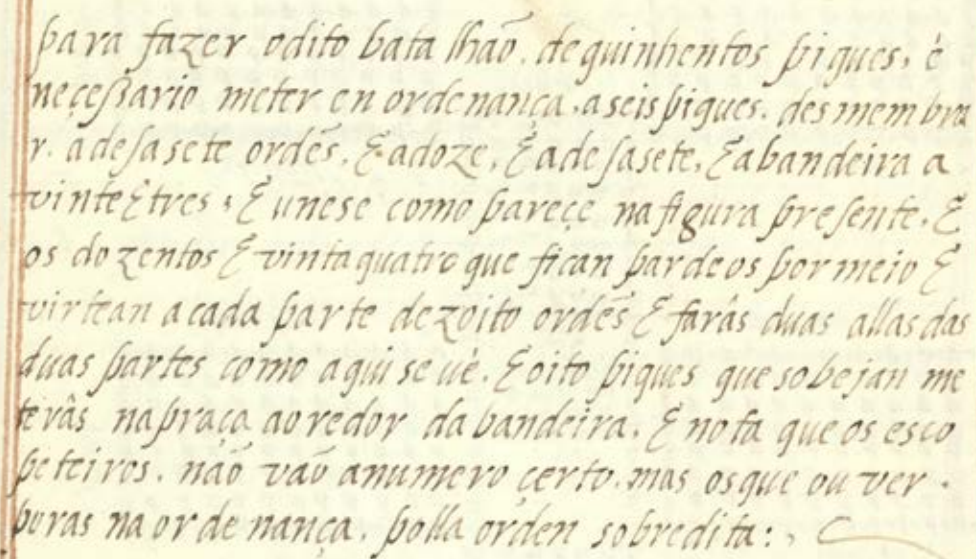 para fazer odito batalhaõ. dequinhentos piques, é
neçeßario meter en ordenança. aseis piques. desmembra
r. adesasete ordẽs. & adoze, & adesasete, & abandeira a
vinte & tres, & unese como pareçe nafigura presente. &
os dozentos & vintaquatro que fican pardeos pormeio &
virtean acada parte dezoito ordẽs & farâs duas allas das
duas partes como aqui se vè. & oito piques que sobejan me
terâs napraça aoredor dabandeira. & nota que os esco
peteiros. naõ vaõ anumero çerto. mas osque ouver.
poras naordenança. polla orden sobredita:,